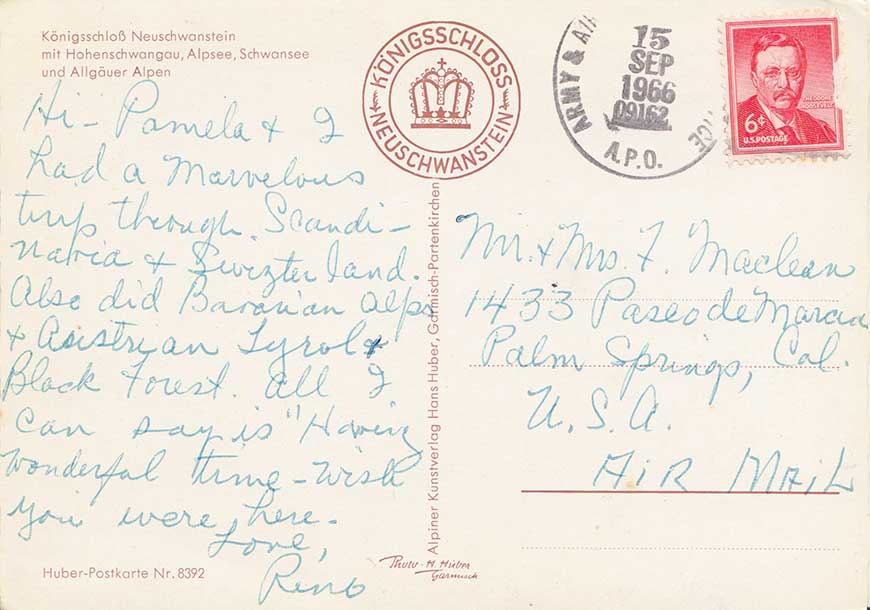 Königsschloß Neuschwanstein
mit Hohenschwangau, Alpsee, Schwansee
und Allgäuer Alpen
KÖNIGSSCHLOSS
NEUSCHWANSTEIN
ARMY & AIR
15
SEP
1966
09162
A.P.O.
THEODORE
ROOSEVELT
6¢
U.S. POSTAGE
Hi – Pamela & I
had a Marvelous
trip through Scandi-
navia & Swizterland.
Also did Bavarian Alps
& Austrian Tyrol &
Black Forest. All I
can say is "Having
wonderful time – wish
you were here.
Love,
Reno
Alpiner Kunstverlag Hans Huber, Garmisch-Partenkirchen
Mr. & Mrs. F. Maclean
1433 Paseo de Marcia
Palm Springs, Cal.
U.S.A.
AIR MAIL
Huber-Postkarte Nr. 8392
Photo - H. Huber
Garmisch